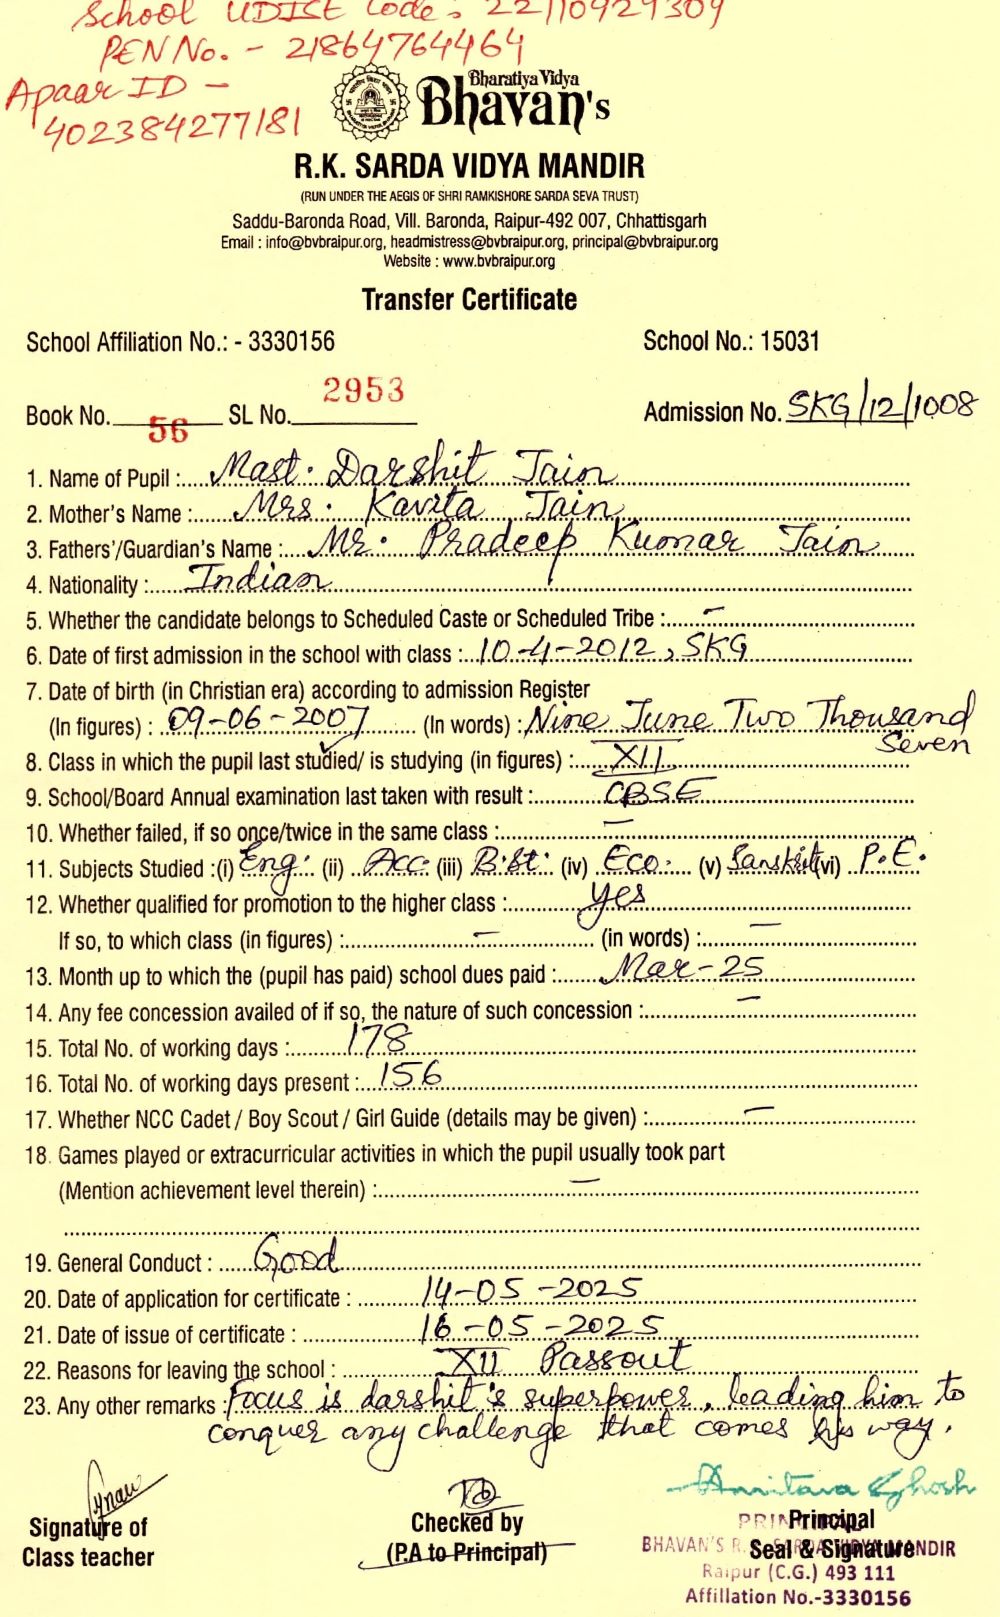 School UDISE Code: 22110929309
PEN No. - 21864764464
Apaar ID -
402384277181
Bharatiya Vidya
Bhavan's
R.K. SARDA VIDYA MANDIR
(RUN UNDER THE AEGIS OF SHRI RAMKISHORE SARDA SEVA TRUST)
Saddu-Baronda Road, Vill. Baronda, Raipur-492 007, Chhattisgarh
Email : info@bvbraipur.org, headmistress@bvbraipur.org, principal@bvbraipur.org
Website : www.bvbraipur.org
Transfer Certificate
School Affiliation No.: - 3330156 School No.: 15031
Book No. 56 SL No. 2953 Admission No. SKG/12/1008
1. Name of Pupil : Mast. Darshit Jain
2. Mother's Name : Mrs. Kavita Jain
3. Fathers'/Guardian's Name : Mr. Pradeep Kumar Jain
4. Nationality : Indian
5. Whether the candidate belongs to Scheduled Caste or Scheduled Tribe : -
6. Date of first admission in the school with class : 10-4-2012, SKG
7. Date of birth (in Christian era) according to admission Register
(In figures) : 09-06-2007 (In words) : Nine June Two Thousand
Seven
8. Class in which the pupil last studied/ is studying (in figures) : XII
9. School/Board Annual examination last taken with result : CBSE
10. Whether failed, if so once/twice in the same class : -
11. Subjects Studied :(i) Eng. (ii) Acc. (iii) B.St. (iv) Eco. (v) Sanskrit (vi) P.E.
12. Whether qualified for promotion to the higher class : yes
If so, to which class (in figures) : - (in words) : -
13. Month up to which the (pupil has paid) school dues paid : Mar-25
14. Any fee concession availed of if so, the nature of such concession : -
15. Total No. of working days : 178
16. Total No. of working days present : 156
17. Whether NCC Cadet / Boy Scout / Girl Guide (details may be given) : -
18. Games played or extracurricular activities in which the pupil usually took part
(Mention achievement level therein) : -
19. General Conduct : Good
20. Date of application for certificate : 14-05-2025
21. Date of issue of certificate : 16-05-2025
22. Reasons for leaving the school : XII Passout
23. Any other remarks : Focus is darshit's superpower, leading him to
conquer any challenge that comes his way.
Amitava Ghosh
Signature of
Class teacher
Checked by
(P.A to Principal)
Principal
Seal & Signature
PRINCIPAL
BHAVAN'S R.K. SARDA VIDYA MANDIR
Raipur (C.G.) 493 111
Affillation No.-3330156